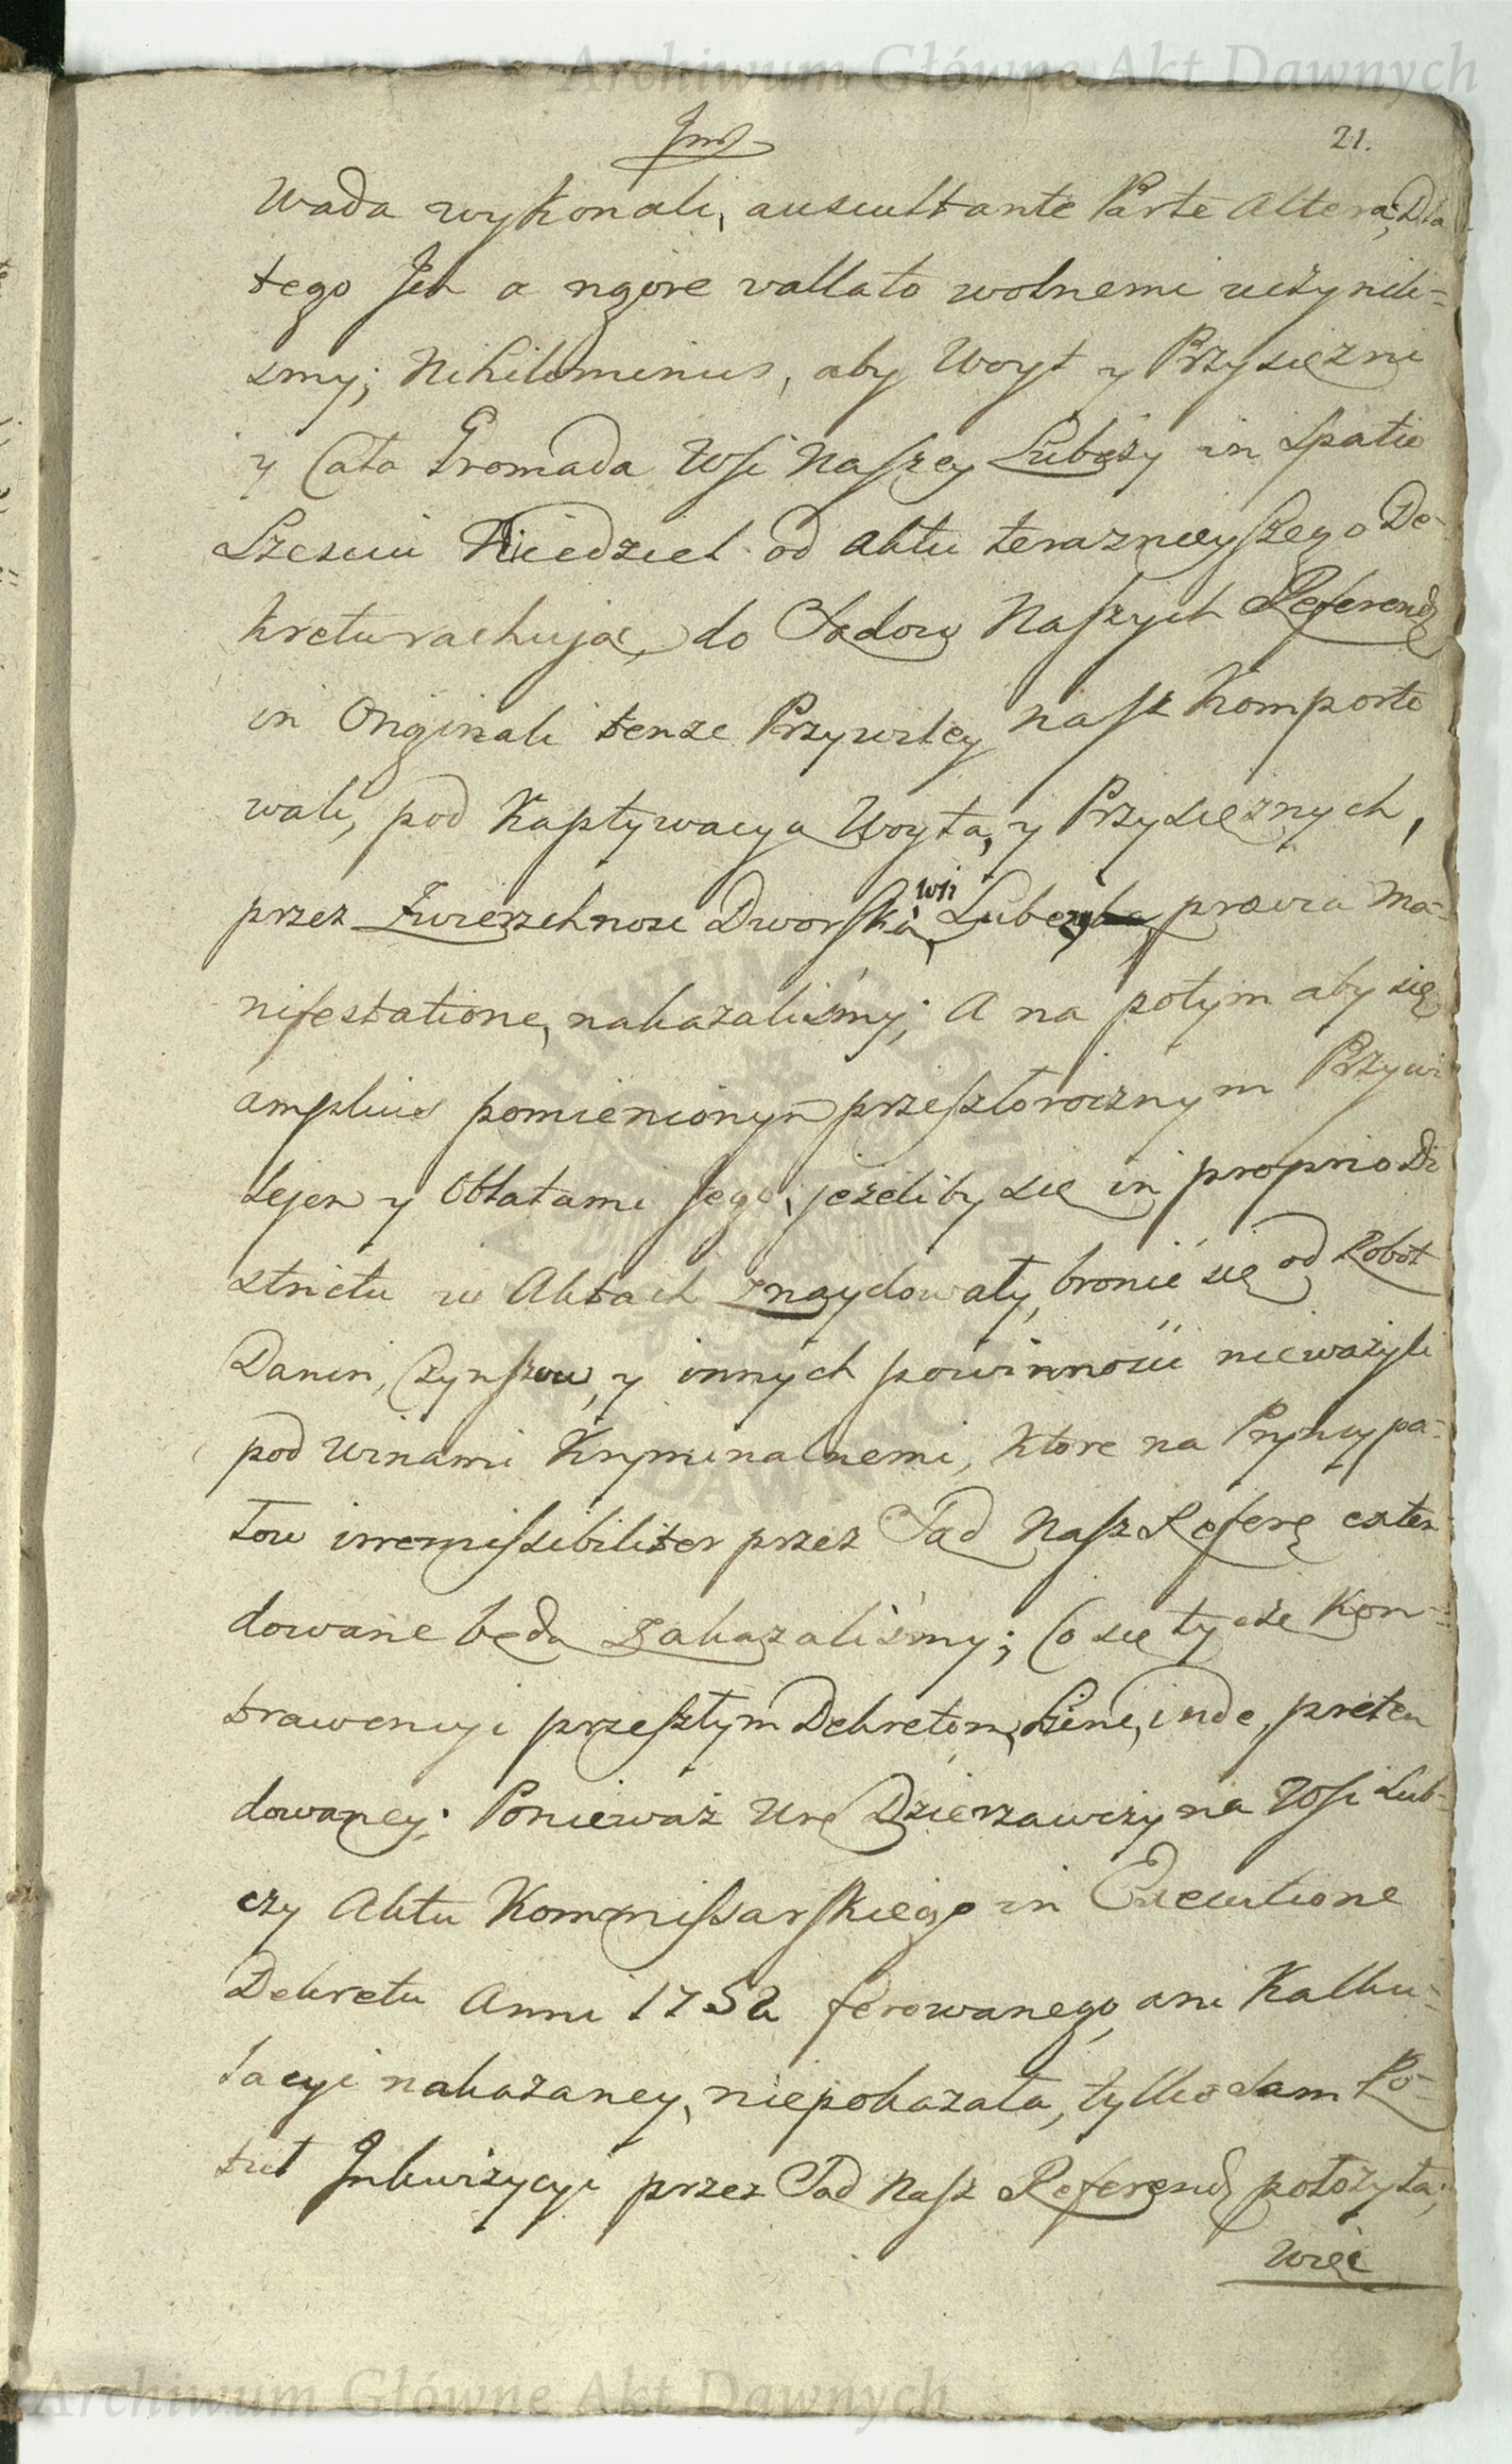 Archiwum Główne Akt Dawnych
21.
wada wykonali, auscultante Parte Altera; Dla
tego Ich a rigore vallato wolnemi uczynili=
smy; Nihilominus, aby Woyt y Przysiężni
y Cała Gromada Wsi Naszey Lubczy in Spatio
Szesciu Niedziel od Aktu teraznieyszego De=
kretu rachując, do Sądow Naszych Referend
in Originali tenze Przywiley nasz Komporto
wali, pod Kaptywacyą Woyta, y Przysięznych,
przez Zwierzchnosc Dworską wsi Lubczy praevia Ma=
nifestatione, nakazalismy; A na potym aby się
amplius pomienionym przeszłorocznym Przywi
lejem y Oblatami Jego, jezeliby się in proprio Di
strictu w Aktach znaydowały, bronić się od Robot
Danin, Czynszow, y innych powinnosci nieważyli
pod Winami Kryminalnemi, Ktore na Pryncypa=
łow irremissibiliter przez Sąd Nasz Referẽ exten
dowane będą zakazaliśmy; Co się tycze Kon=
trawencyi przeszłym Dekretom, Winẽ, inde, preten
dowaney; Ponieważ Urẽ Dzierzawczyna Wsi Lub=
czy Aktu Kommissarskiego in Executione
Dekretu Anni 1752 ferowanego, ani Kalku=
lacyi nakazaney, niepokazała, tylko sam Ro=
tuł Inkwizycyi przez Sąd Nasz Referend położyła;
Więc
Archiwum Główne Akt Dawnych